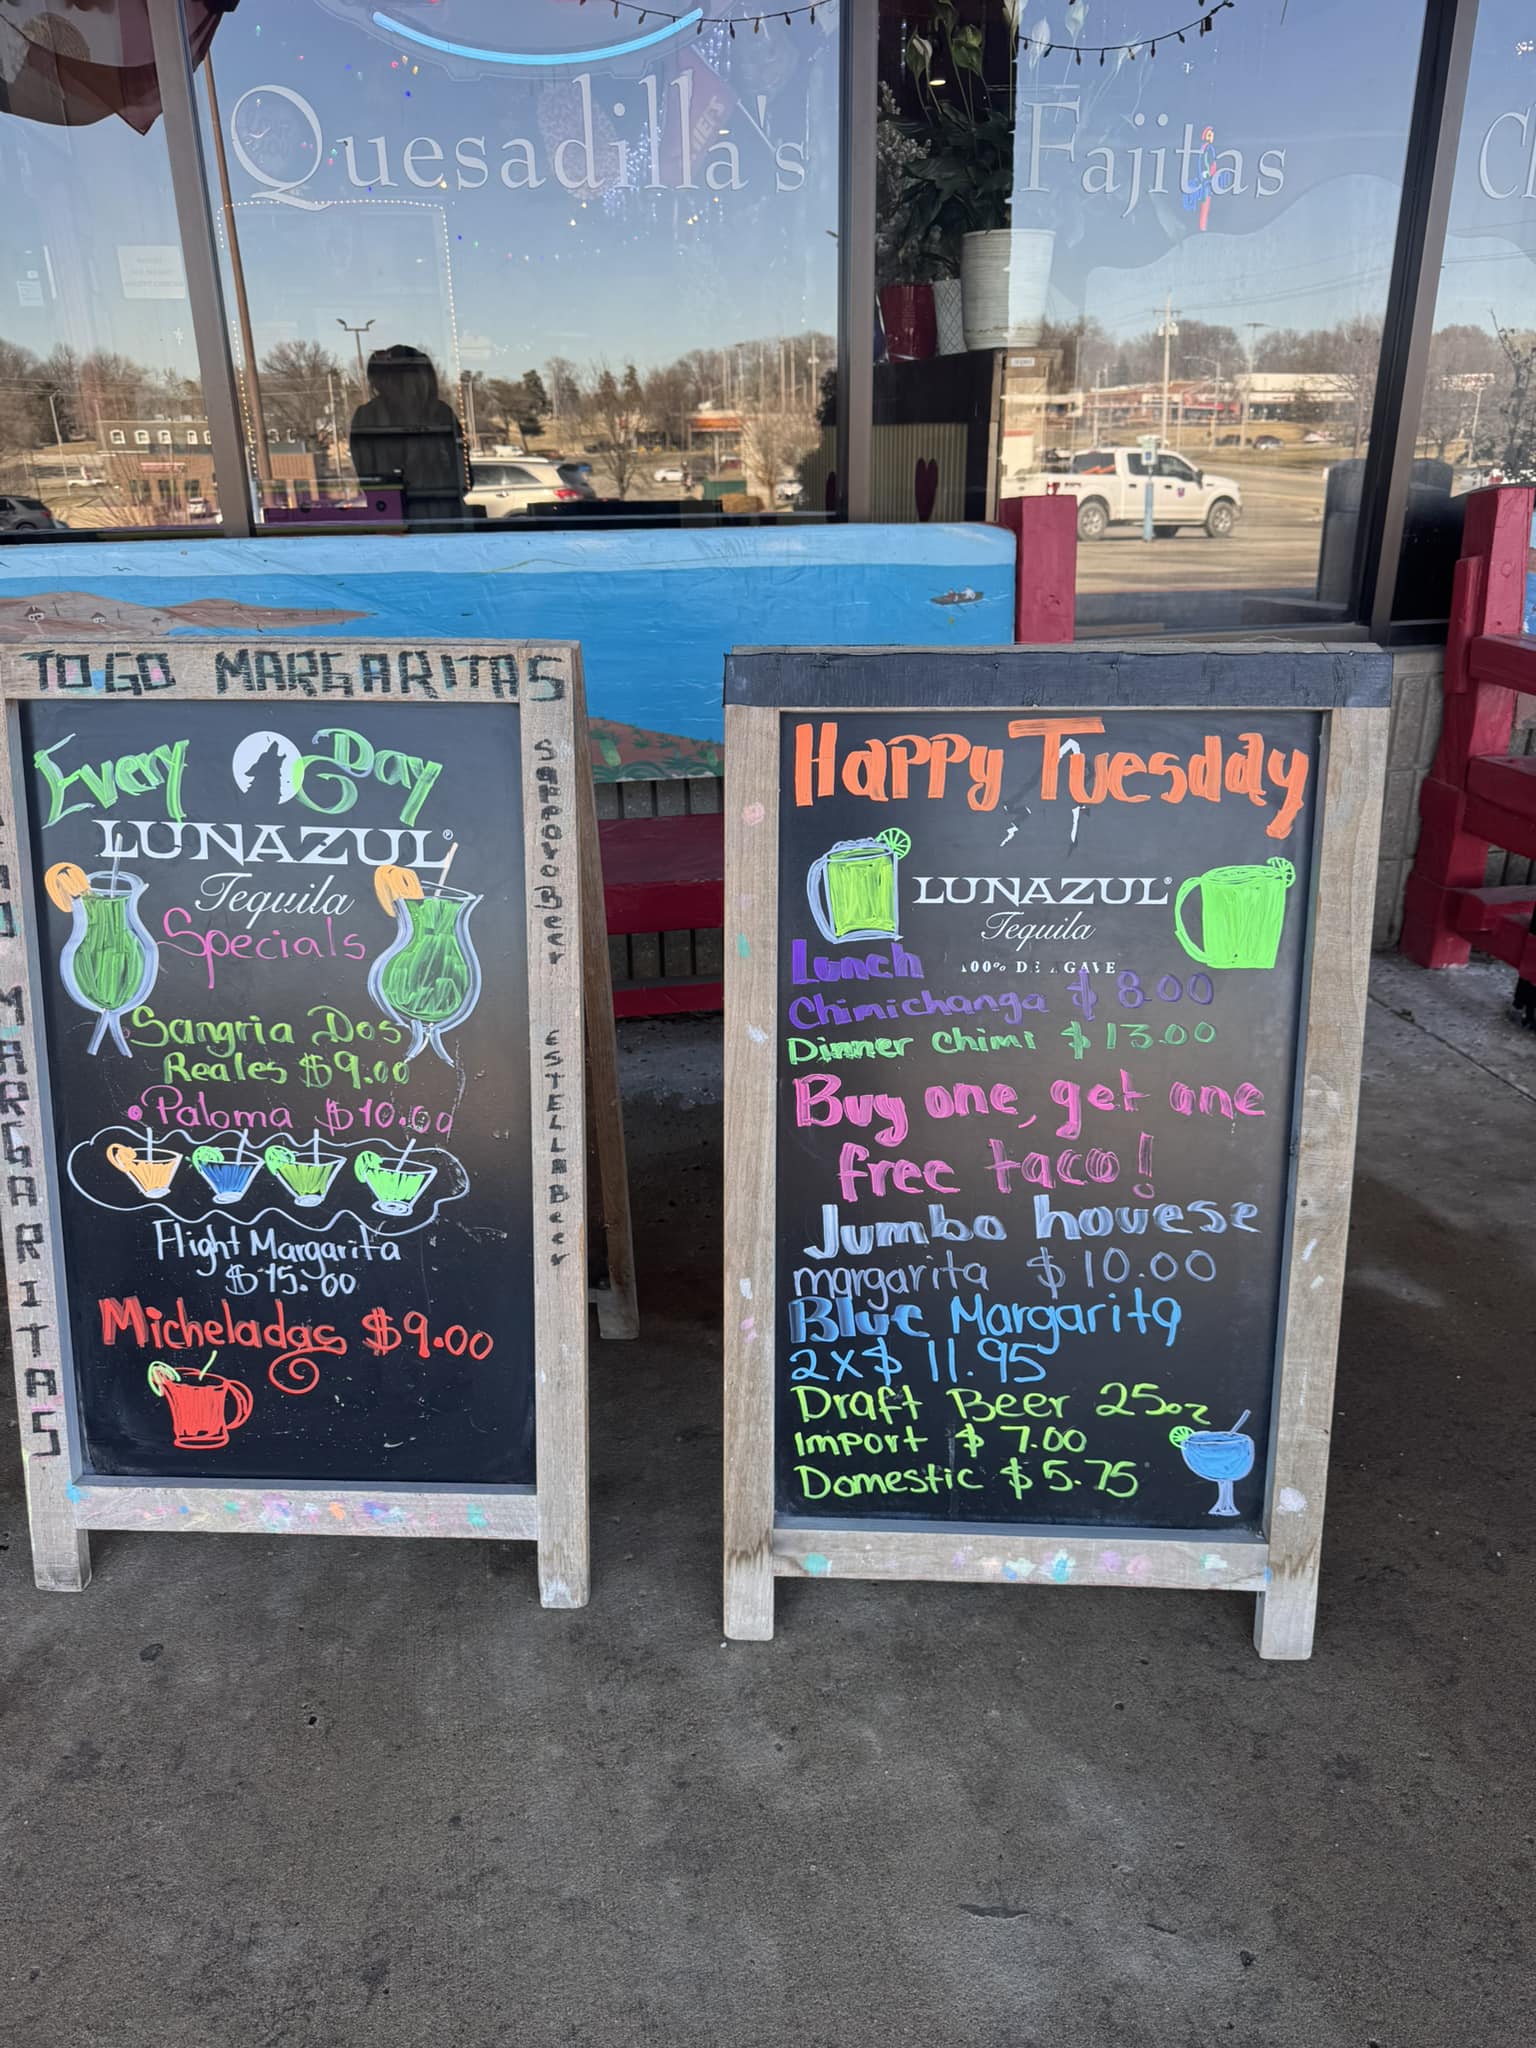 Quesadilla's
Fajitas
TO GO MARGARITAS
Every Day
LUNAZUL®
Tequila
Specials
Sangria Dos
Reales $9.00
Paloma $10.00
Flight Margarita
$15.00
Micheladas $9.00
MARGARITAS
Sapporo Beer
ESTELLA Beer
Happy Tuesday
LUNAZUL®
Tequila
100% DE AGAVE
Lunch
Chimichanga $8.00
Dinner chimi $13.00
Buy one, get one
free taco!
Jumbo houese
margarita $10.00
Blue Margarita
2x$ 11.95
Draft Beer 25oz
Import $7.00
Domestic $5.75